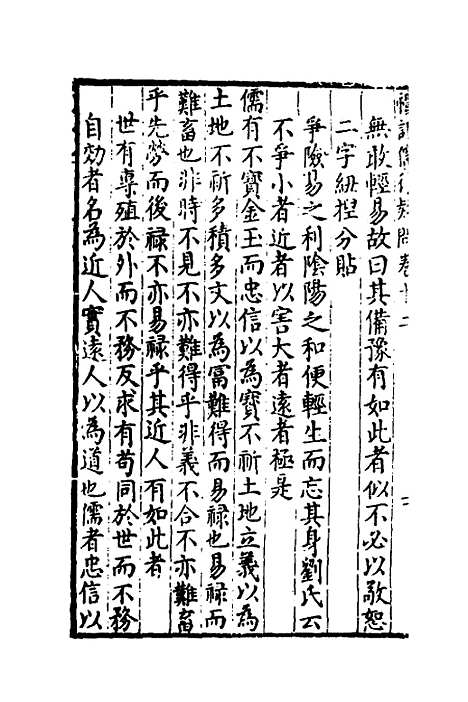 無敢輕易故曰其備豫有如此者似不必以敬恕
二字紐揑分貼
爭險易之利陰陽之和便輕生而忘其身劉氏云
不爭小者近者以害大者遠者極是
儒有不寳金王而忠信以為寳不祈土地立義以為
土地不祈多積多文以為冨難得而易禄也易禄而
難畜也非時不見不亦難得乎非義不合不亦難畜
乎先勞而後禄不亦易禄乎其近人有如此者
世有專殖於外而不務反求有苟同於世而不務
自効者名為近人實遠人以為道也儒者忠信以